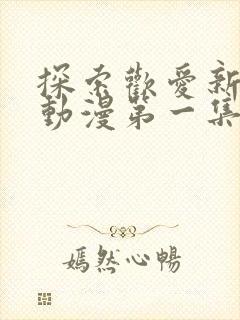 探索歡愛新
動漫第一集
嫣然心暢